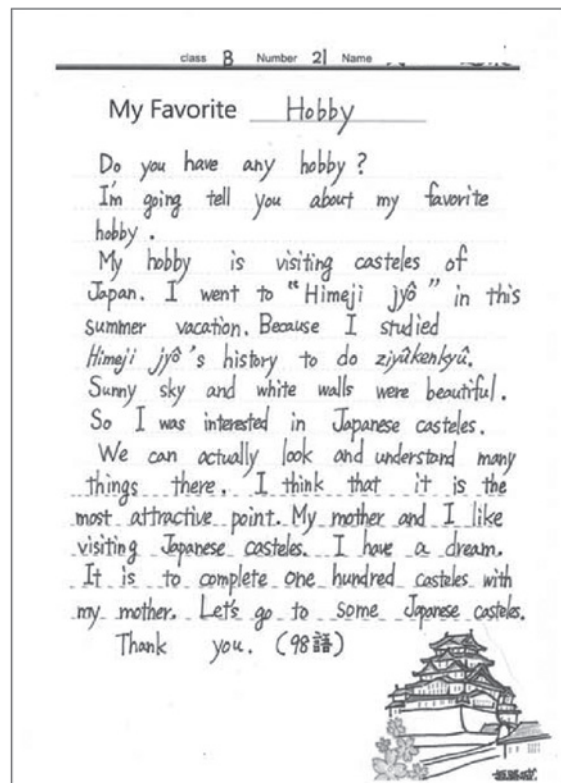 class B Number 21 Name
My Favorite Hobby
Do you have any hobby?
I'm going tell you about my favorite
hobby.
My hobby is visiting casteles of
Japan. I went to "Himeji jyô" in this
summer vacation. Because I studied
Himeji jyô's history to do ziyûkenkyû.
Sunny sky and white walls were beautiful.
So I was interested in Japanese casteles.
We can actually look and understand many
things there. I think that it is the
most attractive point. My mother and I like
visiting Japanese casteles. I have a dream.
It is to complete one hundred casteles with
my mother. Let's go to some Japanese casteles.
Thank you. (98語)